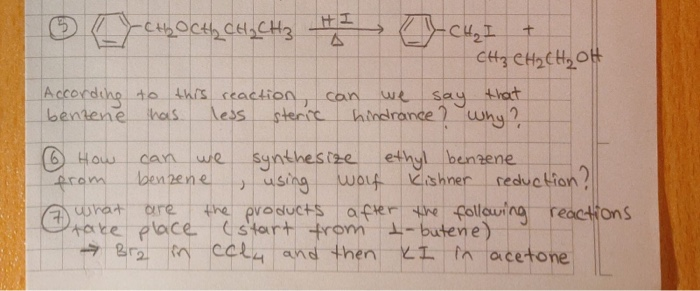 ⑤ -CH₂OCH₂CH₂CH₃ HI Δ → -CH₂I +
CH₃CH₂CH₂OH
According to this reaction, can we say that
benzene has less steric hindrance? Why?
⑥ How can we synthesize ethyl benzene
from benzene, using Wolf Kishner reduction?
⑦ what are the products after the following reactions
take place (start from 1-butene)
→ Br₂ in CCl₄ and then KI in acetone